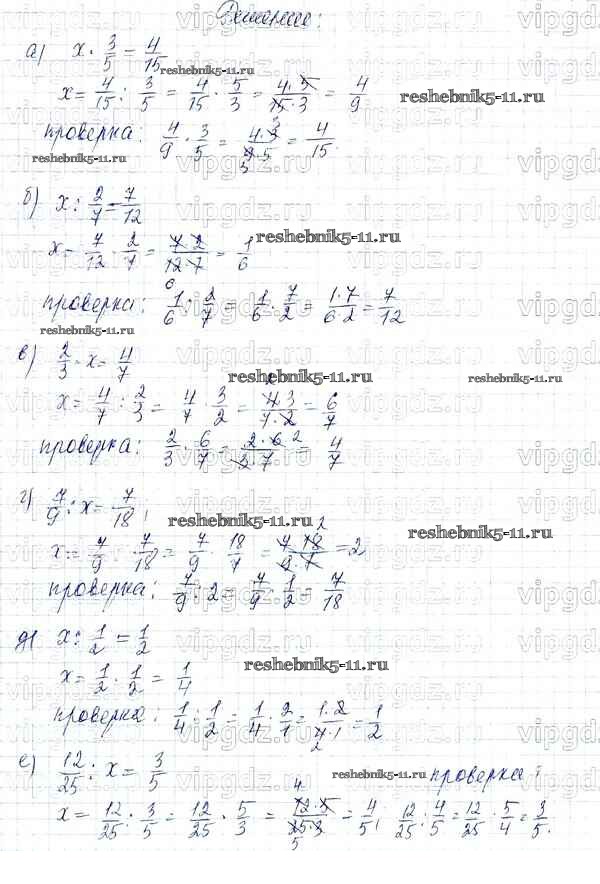 Решение:
а) x · 3/5 = 4/15
x = 4/15 : 3/5 = 4/15 · 5/3 = 4·5/15·3 = 4/9
проверка: 4/9 · 3/5 = 4·3/9·5 = 4/15.
б) x : 2/7 = 7/12
x = 7/12 · 2/7 = 7·2/12·7 = 1/6
проверка: 1/6 : 2/7 = 1/6 · 7/2 = 1·7/6·2 = 7/12
в) 2/3 · x = 4/7
x = 4/7 : 2/3 = 4/7 · 3/2 = 4·3/7·2 = 6/7
проверка: 2/3 · 6/7 = 2·6/3·7 = 4/7
г) 7/9 : x = 7/18
x = 7/9 : 7/18 = 7/9 · 18/7 = 7·18/9·7 = 2
проверка: 7/9 : 2 = 7/9 · 1/2 = 7/18
д) x : 1/2 = 1/2
x = 1/2 · 1/2 = 1/4
проверка: 1/4 : 1/2 = 1/4 · 2/1 = 1·2/4·1 = 1/2
е) 12/25 : x = 3/5 проверка:
x = 12/25 : 3/5 = 12/25 · 5/3 = 12·5/25·3 = 4/5; 12/25 : 4/5 = 12/25 · 5/4 = 3/5.
reshebnik5-11.ru
vipgdz.ru